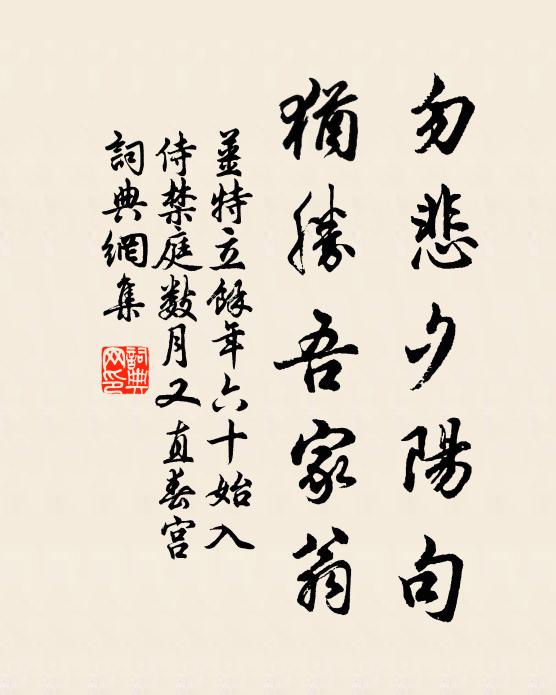 勿悲夕陽句
猶勝吾家翁
姜特立餘年六十始入
侍禁庭數月又直春宮
詞典網集
詞典網印